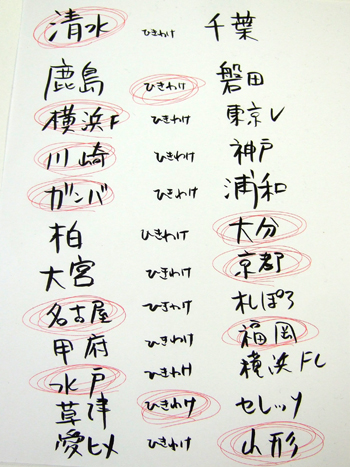 清水 ひきわけ 千葉
鹿島 ひきわけ 磐田
横浜F ひきわけ 東京V
川崎 ひきわけ 神戸
ガンバ ひきわけ 浦和
柏 ひきわけ 大分
大宮 ひきわけ 京都
名古屋 ひきわけ 札ぽろ
甲府 ひきわけ 福岡
水戸 ひきわけ 横浜FC
草津 ひきわけ セレッソ
愛ヒメ ひきわけ 山形